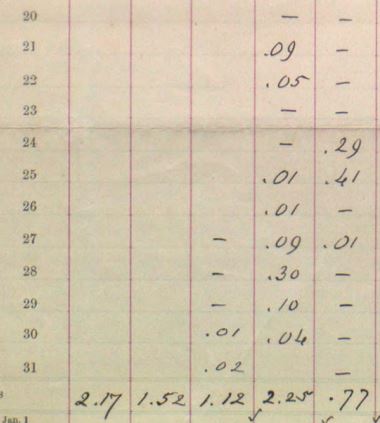 20 — —
21 .09 —
22 .05 —
23 — —
24 — .29
25 .01 .41
26 .01 —
27 — .09 .01
28 — .30 —
29 — .10 —
30 .01 .04 —
31 .02 —
s 2.17 1.52 1.12 2.25 .77
Jan. 1 ✓ ✓ ✓